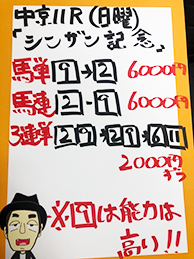 中京11R(日曜)
「シンザン記念」
馬単 9→2 6000円
馬連 2-9 6000円
3連単 29→29→611
2000円
※9は能力は
高い!!